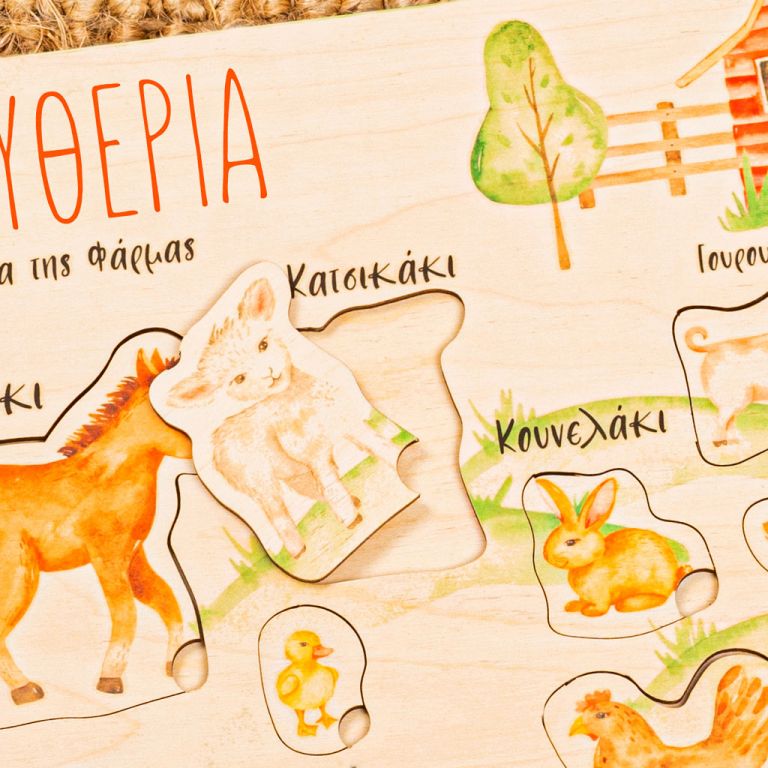 ΥΘΕΡΙΑ
α της Φάρμας
Κατσικάκι
Γουρου
κι
Κουνελάκι